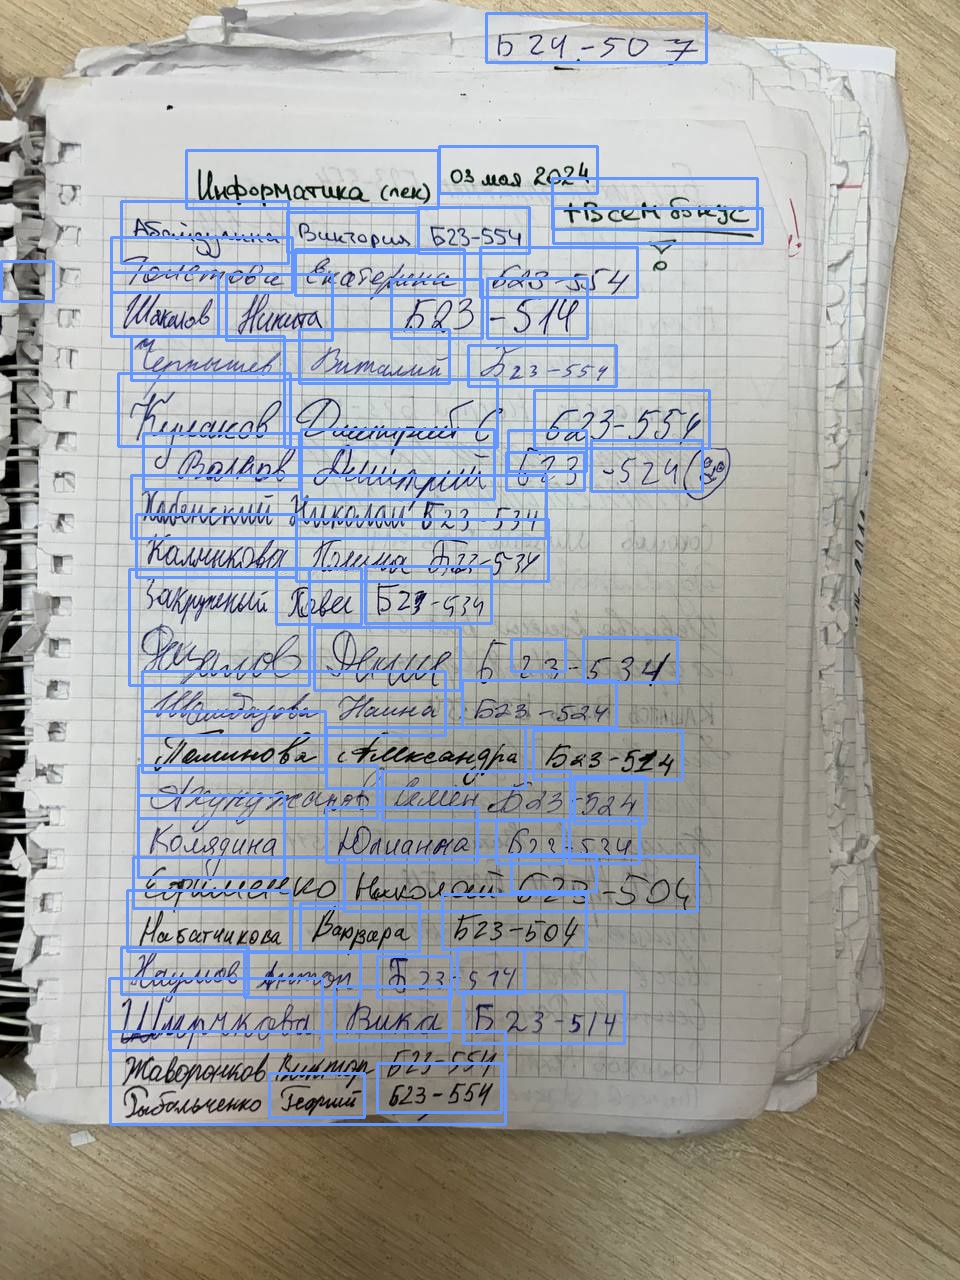 Б24-507
Информатика (лек) 03 мая 2024
+Всем бонус
Виктория Б23-554
Толстова Екатерина Б23-554
Шакалов Никита Б23-514
Чернышев Виталий Б23-554
Дмитрий С Б23-554
Волков Дмитрий Б23-524
Хабенский Николай Б23-534
Калинкова Полина Б23-534
Закружный Павел Б23-534
Денис Б23-534
Б23-524
Александра Б23-514
Семён Б23-524
Колядина Юлианна Б23-534
Ефименко Николай Б23-504
Набатчикова Варвара Б23-504
Наумов Антон Б23-514
Вика Б23-514
Жаворонков Виктор Б23-554
Рыбольченко Георгий Б23-554